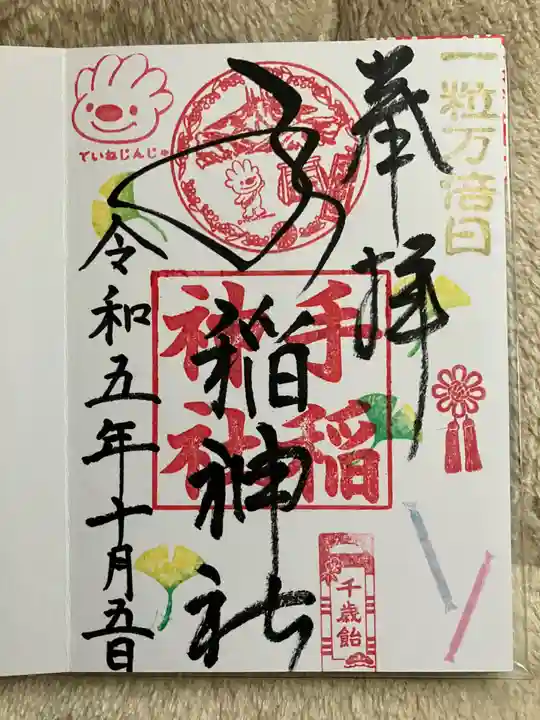 一粒万倍日
奉拝
手稲神社
手稲
神社
ていねじんじゃ
千歳飴
令和五年十月五日